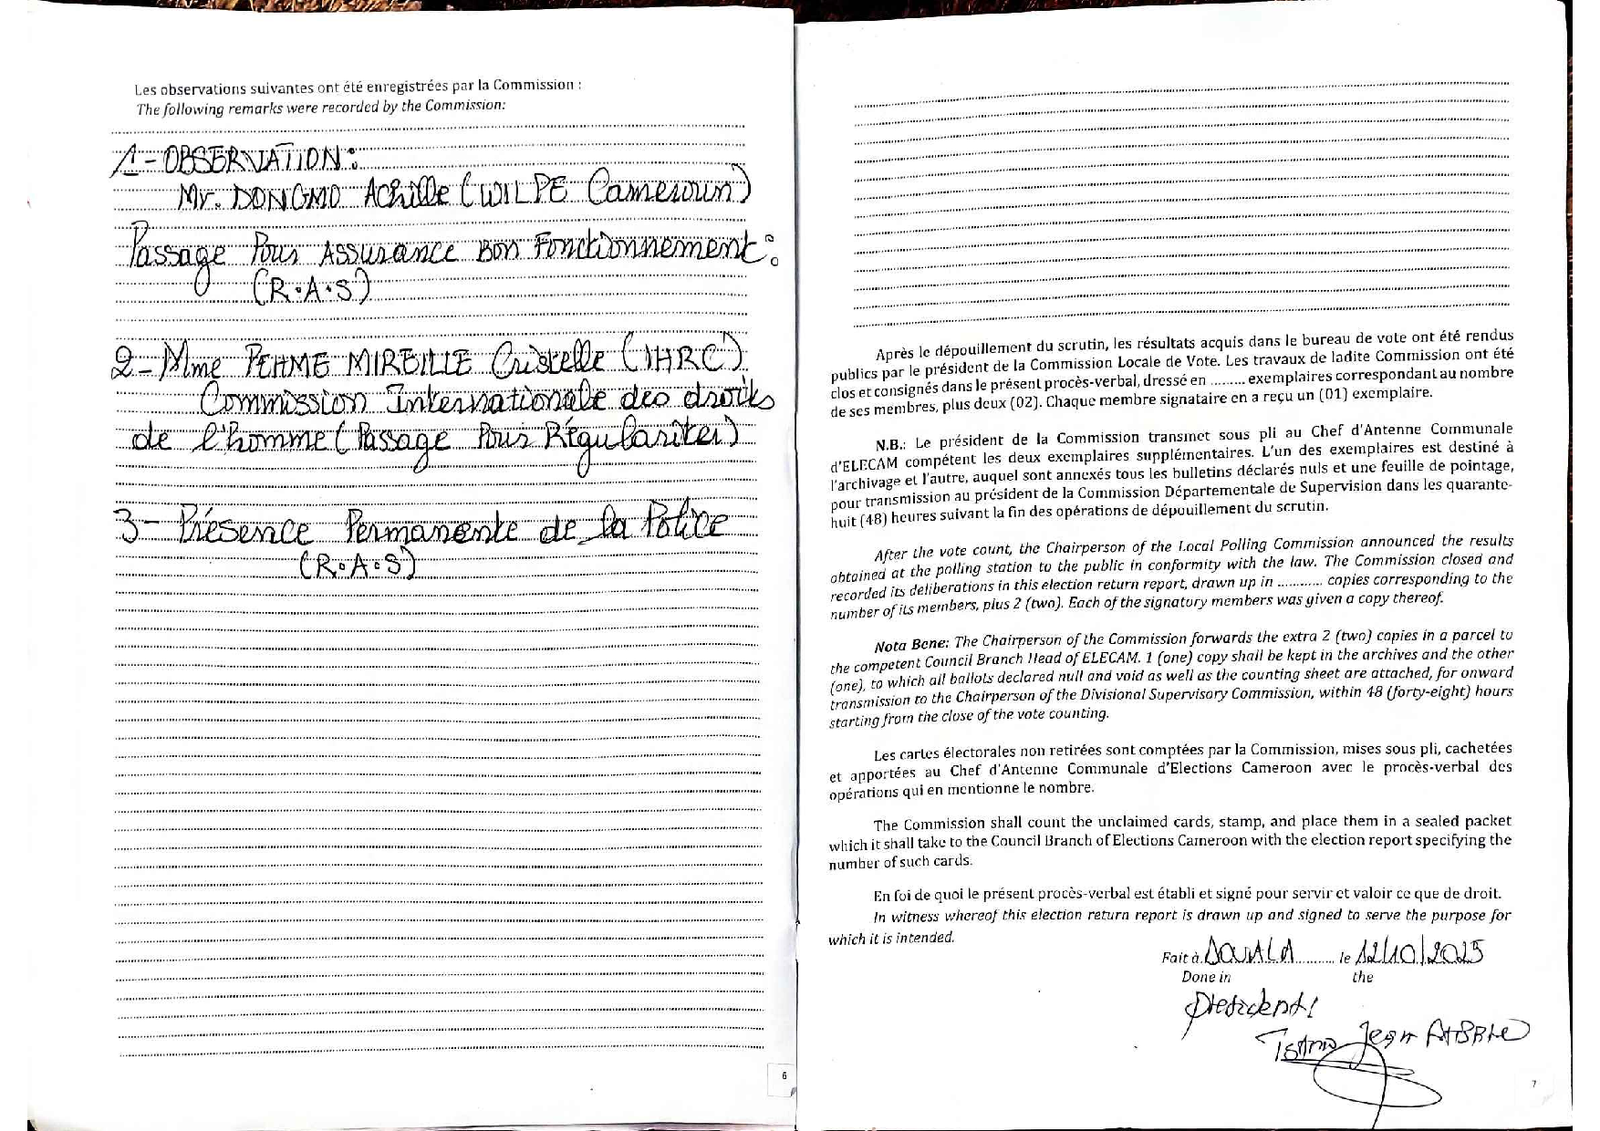 Les observations suivantes ont été enregistrées par la Commission :
The following remarks were recorded by the Commission:
1- OBSERVATION:
Mr. DONGMO Achille (WILPE Cameroun)
Passage Pour Assurance Bon Fonctionnement:
(R.A.S)
2- Mme PEHME MIREILLE Cristelle (IHRC)
Commission Internationale des droits
de l'homme (Passage Pour Régulariter)
3- Présence Permanente de la Police
(R.A.S)
6
Après le dépouillement du scrutin, les résultats acquis dans le bureau de vote ont été rendus
publics par le président de la Commission Locale de Vote. Les travaux de ladite Commission ont été
clos et consignés dans le présent procès-verbal, dressé en ......... exemplaires correspondant au nombre
de ses membres, plus deux (02). Chaque membre signataire en a reçu un (01) exemplaire.
N.B.: Le président de la Commission transmet sous pli au Chef d'Antenne Communale
d'ELECAM compétent les deux exemplaires supplémentaires. L'un des exemplaires est destiné à
l'archivage et l'autre, auquel sont annexés tous les bulletins déclarés nuls et une feuille de pointage,
pour transmission au président de la Commission Départementale de Supervision dans les quarante-
huit (48) heures suivant la fin des opérations de dépouillement du scrutin.
After the vote count, the Chairperson of the Local Polling Commission announced the results
obtained at the polling station to the public in conformity with the law. The Commission closed and
recorded its deliberations in this election return report, drawn up in ............ copies corresponding to the
number of its members, plus 2 (two). Each of the signatory members was given a copy thereof.
Nota Bene: The Chairperson of the Commission forwards the extra 2 (two) copies in a parcel to
the competent Council Branch Head of ELECAM. 1 (one) copy shall be kept in the archives and the other
(one), to which all ballots declared null and void as well as the counting sheet are attached, for onward
transmission to the Chairperson of the Divisional Supervisory Commission, within 48 (forty-eight) hours
starting from the close of the vote counting.
Les cartes électorales non retirées sont comptées par la Commission, mises sous pli, cachetées
et apportées au Chef d'Antenne Communale d'Elections Cameroon avec le procès-verbal des
opérations qui en mentionne le nombre.
The Commission shall count the unclaimed cards, stamp, and place them in a sealed packet
which it shall take to the Council Branch of Elections Cameroon with the election report specifying the
number of such cards.
En foi de quoi le présent procès-verbal est établi et signé pour servir et valoir ce que de droit.
In witness whereof this election return report is drawn up and signed to serve the purpose for
which it is intended.
Fait à DOUALA le 12/10/2025
Done in the
President
Jean
7